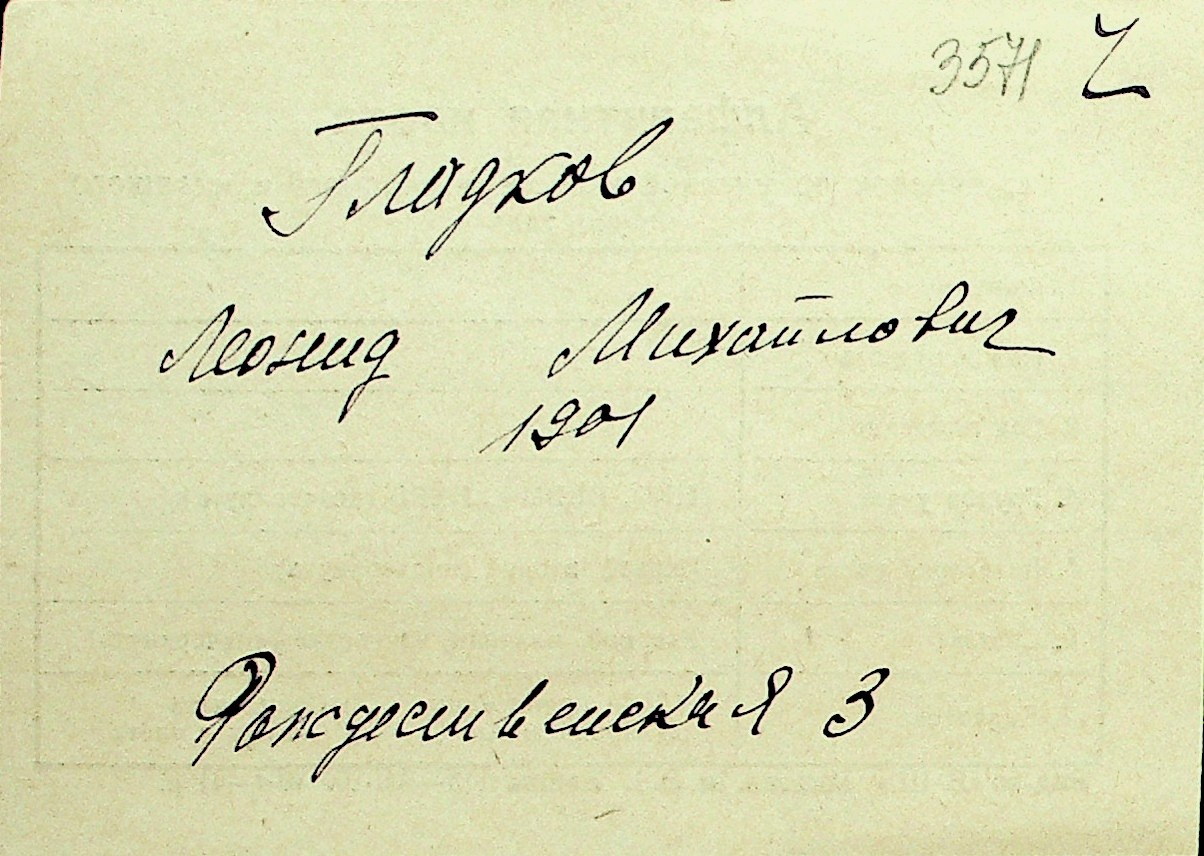 3571
Гладков
Леонид Михайлович
1901
Рождественская 3